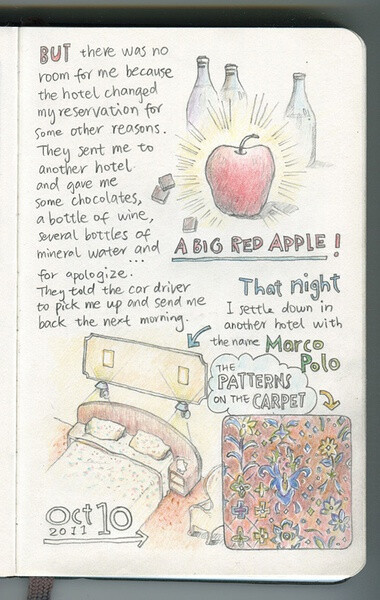 BUT there was no
room for me because
the hotel changed
my reservation for
some other reasons.
They sent me to
another hotel
and gave me
some chocolates,
a bottle of wine,
several bottles of
mineral water and
...
A BIG RED APPLE!
for apologize.
They told the car driver
to pick me up and send me
back the next morning.
That night
I settle down in
another hotel with
the name Marco
Polo
THE
PATTERNS
ON THE CARPET
Oct 10
2011